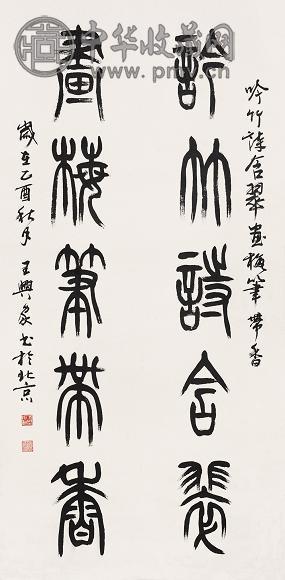 中华收藏网
吟竹詩含翠畫梅筆帶香
吟竹詩含翠
畫梅筆帶香
歲在乙酉秋月王興家书於北京